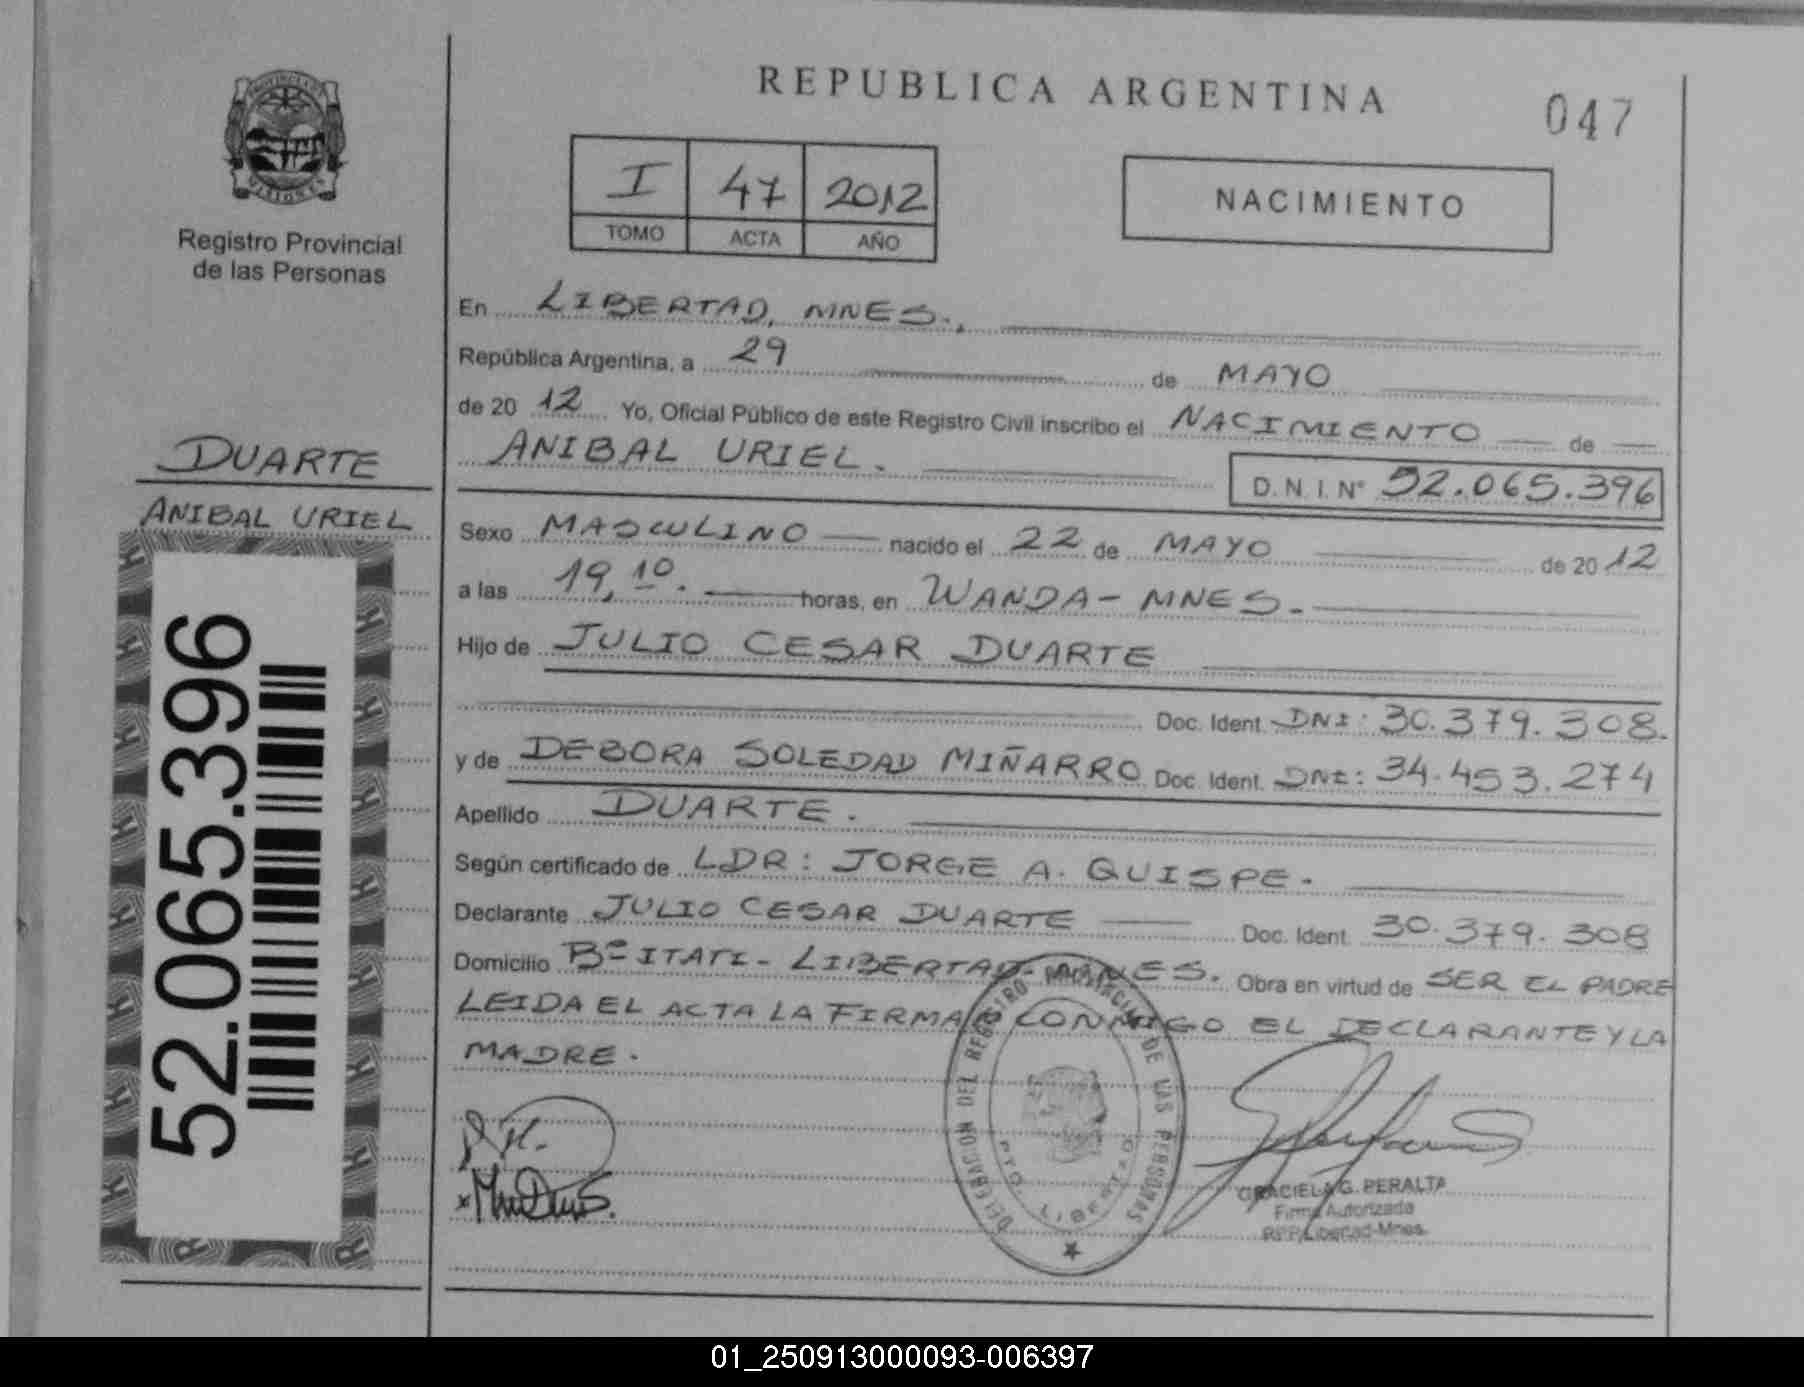 REPUBLICA ARGENTINA
047
PROVINCIA DE MISIONES
Registro Provincial
de las Personas
I 47 2012
TOMO ACTA AÑO
NACIMIENTO
En LIBERTAD, MNES.,
República Argentina, a 29 de MAYO
de 20 12 Yo, Oficial Público de este Registro Civil inscribo el NACIMIENTO de
ANIBAL URIEL. D.N.I. Nº 52.065.396
DUARTE
ANIBAL URIEL
52.065.396
Sexo MASCULINO nacido el 22 de MAYO de 20 12
a las 19,10. horas, en WANDA - MNES.
Hijo de JULIO CESAR DUARTE
Doc. Ident. DNI: 30.379.308.
y de DEBORA SOLEDAD MIÑARRO Doc. Ident. DNI: 34.453.274
Apellido DUARTE.
Según certificado de LDR: JORGE A. QUISPE.
Declarante JULIO CESAR DUARTE Doc. Ident. 30.379.308
Domicilio Bº ITATI - LIBERTAD - MNES. Obra en virtud de SER EL PADRE
LEIDA EL ACTA LA FIRMA CONMIGO EL DECLARANTE Y LA
MADRE.
DELEGACION DEL REGISTRO PROVINCIAL DE LAS PERSONAS
PTO. LIBERTAD
GRACIELA G. PERALTA
Firma Autorizada
RPP Libertad-Mnes.
01_250913000093-006397